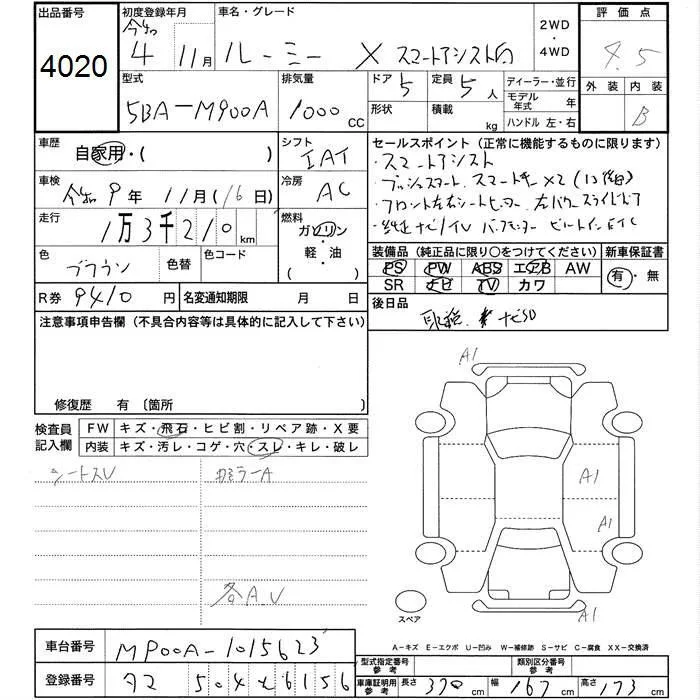 出品番号
4020
初度登録年月
令和
4 11月
車名・グレード
ルーミー X スマートアシスト付
2WD
・
4WD
評価点
4.5
外装 内装
B
型式
5BA-M900A
排気量
1000 CC
ドア 5
形状
定員 5 人
積載 kg
ディーラー・並行
モデル年式 年
ハンドル 左・右
車歴
自家用・( )
シフト
IAT
車検
令和 9 年 11月(16日)
冷房
AC
走行
1万3千210 km
燃料
ガソリン
・
軽・油
( )
色
ブラウン
色替
色コード
R券 9410 円
名変通知期限 月 日
セールスポイント(正常に機能するものに限ります)
・スマートアシスト
・プッシュスタート スマートキー×2
・フロント左右シートヒーター 左右パワースライドドア
・純正ナビTV バックモニター ビルトインETC
装備品(純正品に限り○をつけてください)
新車保証書
PS PW ABS エアB AW
SR ナビ TV カワ
有・無
後日品
取説 ナビSD
注意事項申告欄(不具合内容等は具体的に記入して下さい)
修復歴 有 〔箇所
検査員
記入欄
FW キズ・飛石・ヒビ割・リペア跡・X要
内装 キズ・汚レ・コゲ・穴・スレ・キレ・破レ
シートスレ
ミラーA
各A.U
A1
A1
A1
A1
スペア
A-キズ E-エクボ U-凹み W-補修跡 S-サビ C-腐食 XX-交換済
車台番号 M900A-1015623
登録番号 504 6156
型式指定番号
参考
類別区分番号
参考
車庫証明用
参考
長さ 370 cm 幅 167 cm 高さ 173 cm